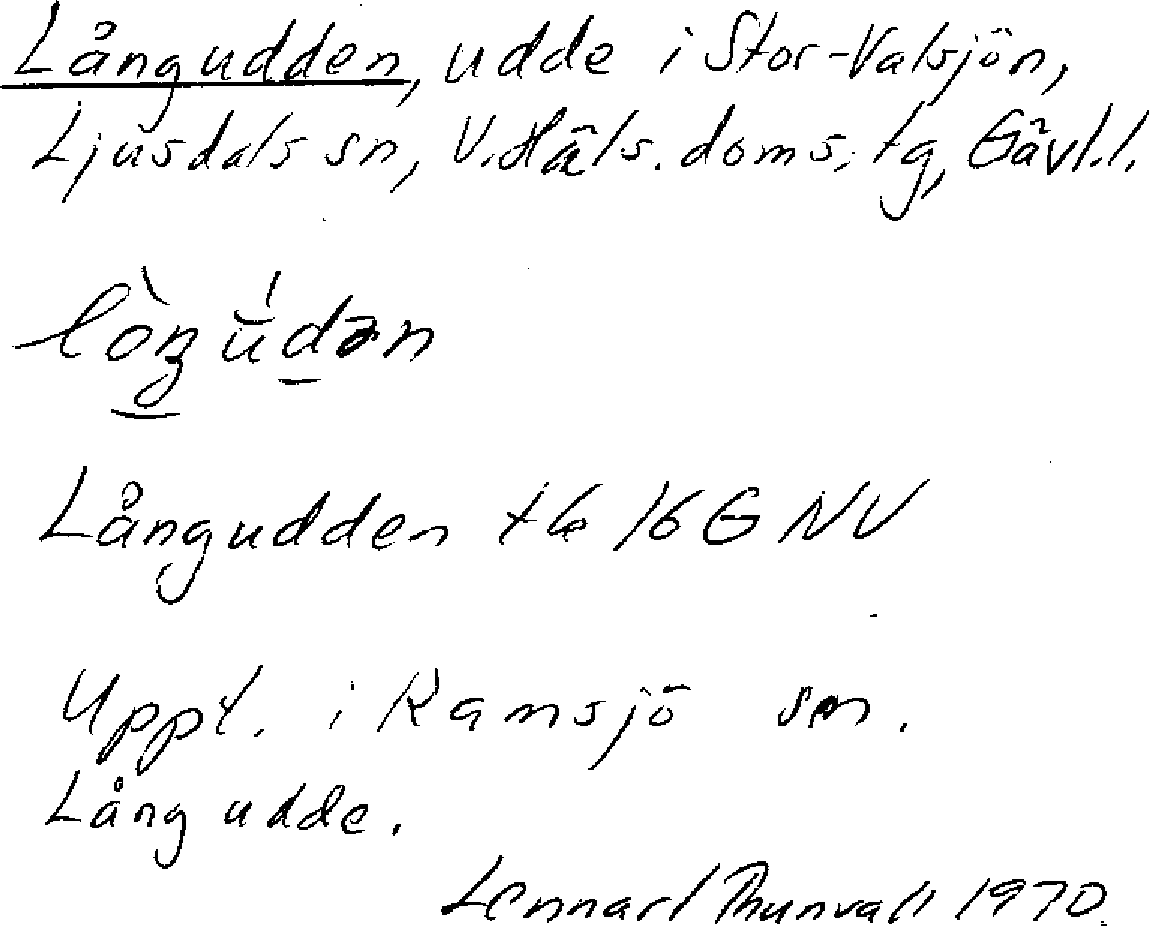 Långudden, udde i Stor-Valsjön,
Ljusdals sn, V. Häls. doms. tg, Gävl. l.
Långudden tb 16 G NV
Uppt. i Ramsjö sn.
Lång udde.
Lennart Thunvall 1970.